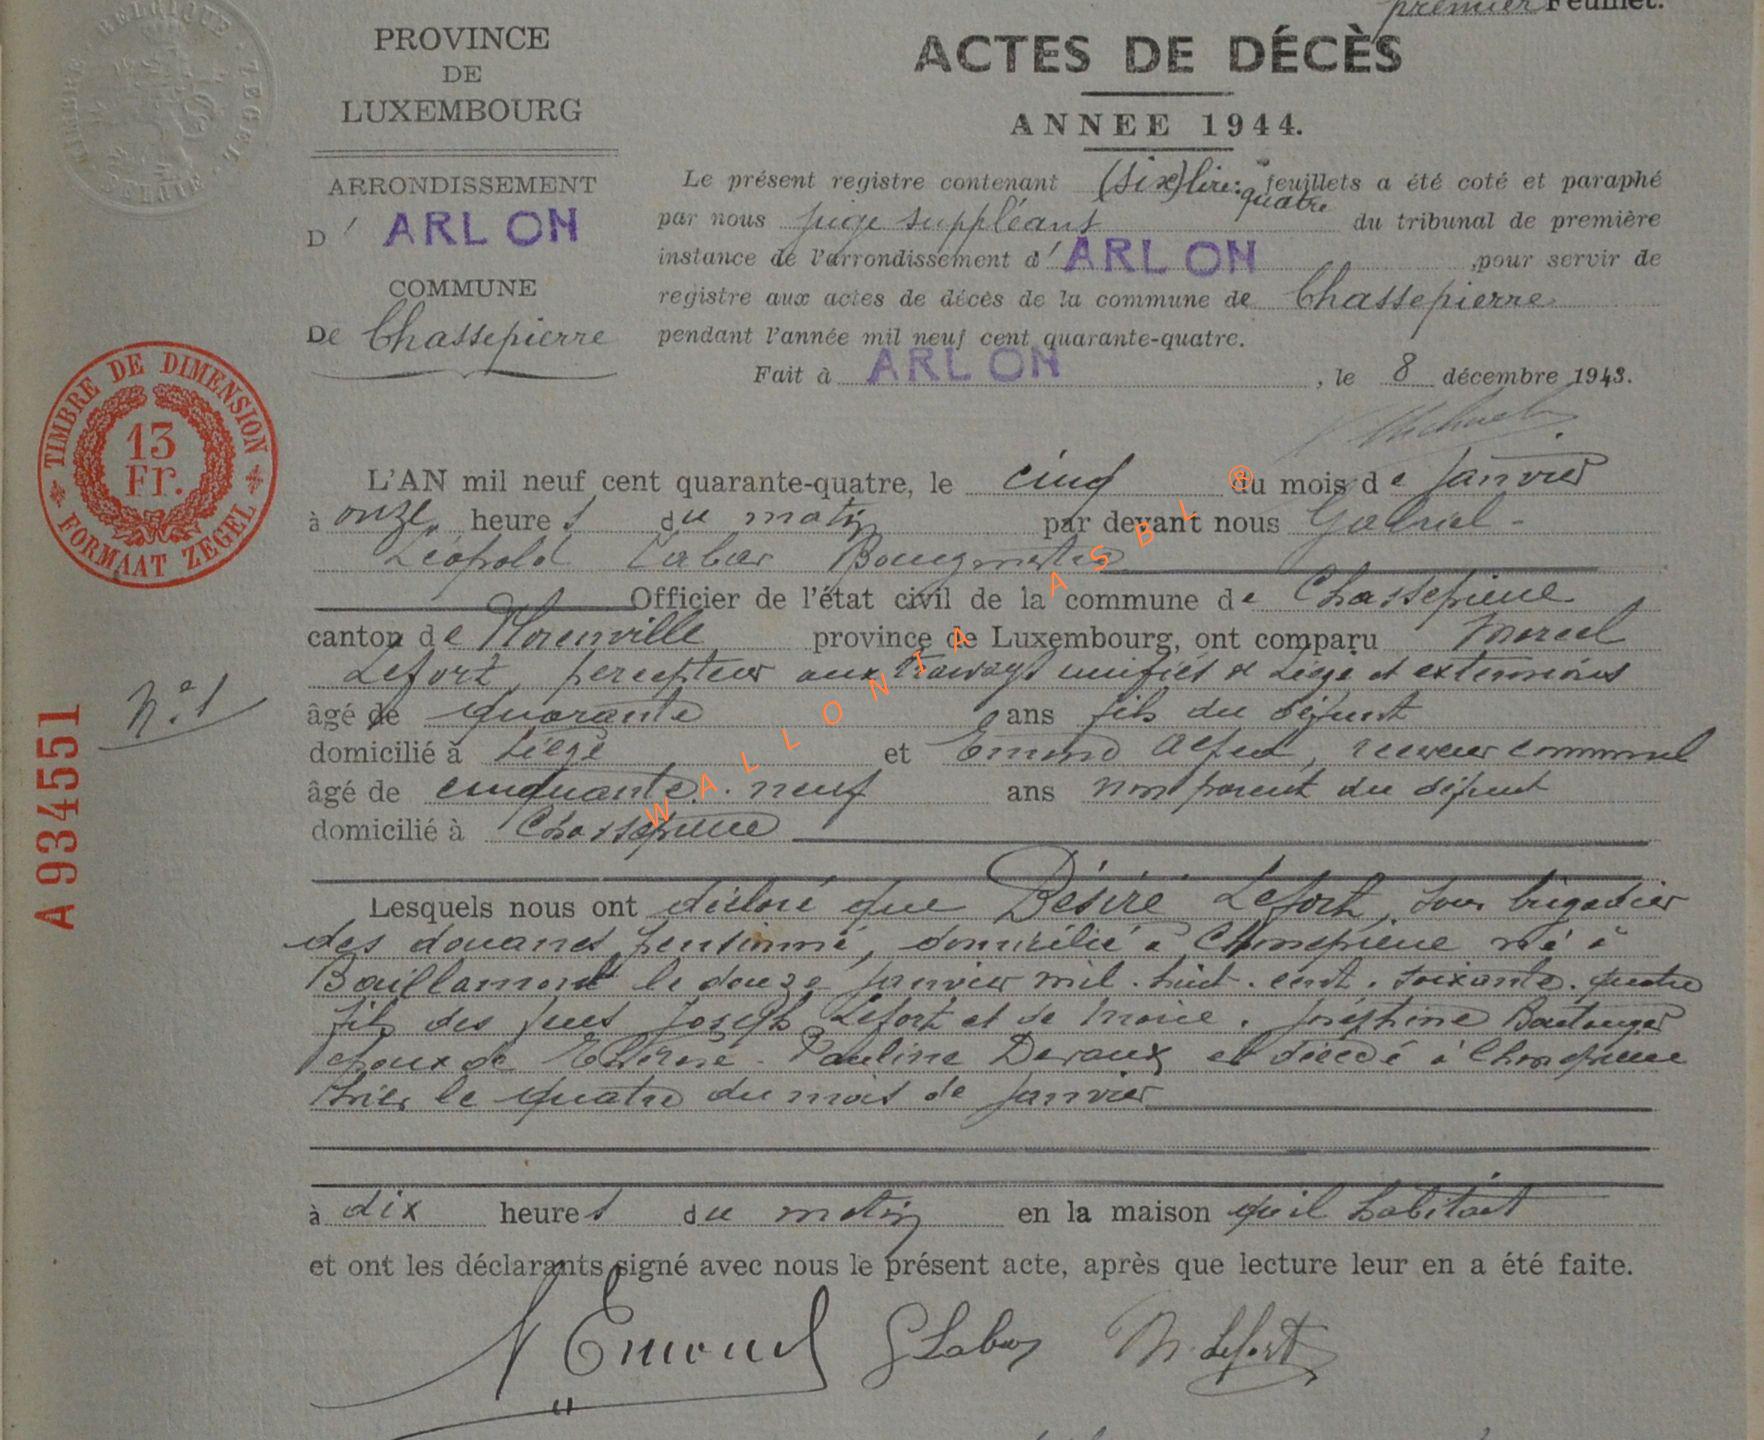 premier Feuillet.
BELGIQUE · ZEGEL · BELGIE · TIMBRE
PROVINCE
DE
LUXEMBOURG
ARRONDISSEMENT
D' ARLON
COMMUNE
De Chassepierre
ACTES DE DÉCÈS
ANNEE 1944.
Le présent registre contenant (six) lire: quatre feuillets a été coté et paraphé
par nous juge suppléant du tribunal de première
instance de l'arrondissement d' ARLON ,pour servir de
registre aux actes de décès de la commune de Chassepierre
pendant l'année mil neuf cent quarante-quatre.
Fait à ARLON , le 8 décembre 1943.
TIMBRE DE DIMENSION
13
Fr.
FORMAAT ZEGEL
A934551
N° 1
L'AN mil neuf cent quarante-quatre, le cinq du mois de Janvier
à onze heures du matin par devant nous Gabriel-
Léopold Labar Bourgmestre
Officier de l'état civil de la commune de Chassepierre
canton de Florenville province de Luxembourg, ont comparu Marcel
Lefort, percepteur aux tramways unifiés de Liège et extensions
âgé de quarante ans fils du défunt
domicilié à Liège et Emond Alfred, receveur communal
âgé de cinquante-neuf ans non parent du défunt
domicilié à Chassepierre
Lesquels nous ont déclaré que Désiré Lefort, sous brigadier
des douanes pensionné, domicilié à Chassepierre né à
Baillamont le douze janvier mil-huit-cent-soixante-quatre
fils des feus Joseph Lefort et de Marie-Joséphine Boulanger
époux de Thérèse-Pauline Devaux est décédé à Chassepierre
hier le quatre du mois de janvier
à dix heures du matin en la maison qu'il habitait
et ont les déclarants signé avec nous le présent acte, après que lecture leur en a été faite.
Emond G Labar M. Lefort
WALLONIA ASBL ®